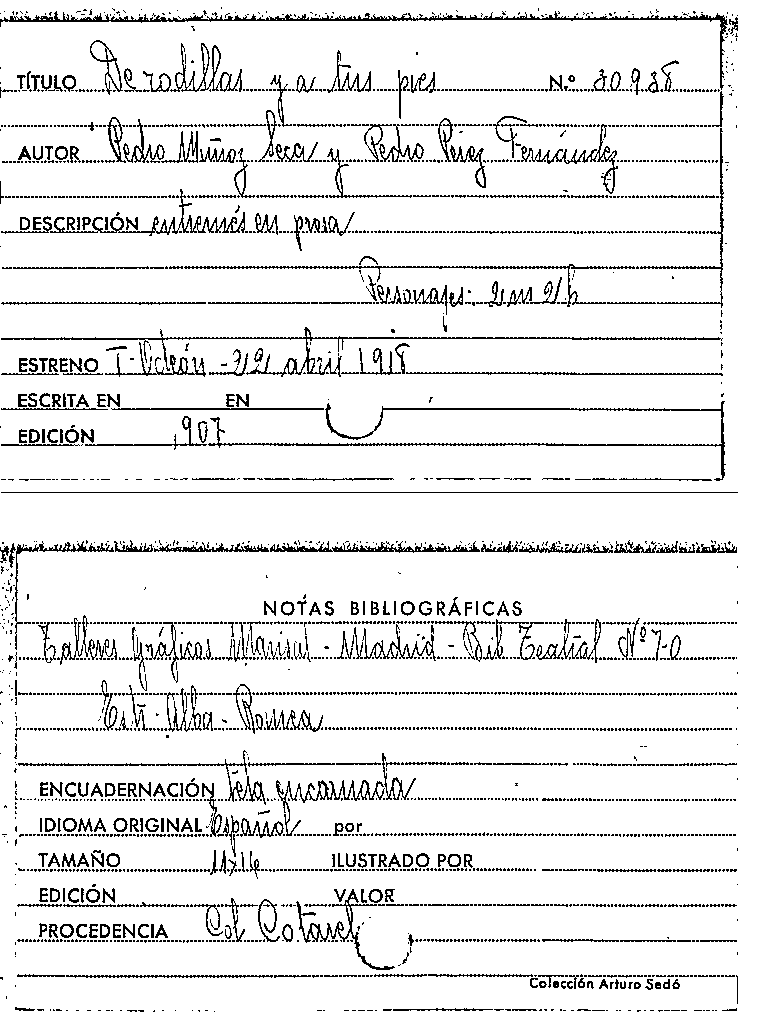 TÍTULO De rodillas y a tus pies N.º 30938
AUTOR Pedro Muñoz Seca y Pedro Pérez Fernández
DESCRIPCIÓN entremés en prosa
Personajes: 2 m 2 h
ESTRENO T-Odeón - 22 abril 1918
ESCRITA EN EN
EDICIÓN 1907
NOTAS BIBLIOGRÁFICAS
Talleres Gráficos Marisal - Madrid - Bib Teatral Nº 70
Estr - Alba -
ENCUADERNACIÓN tela encarnada
IDIOMA ORIGINAL Español por
TAMAÑO 11x16 ILUSTRADO POR
EDICIÓN VALOR
PROCEDENCIA Col Cotarel
Colección Arturo Sedó